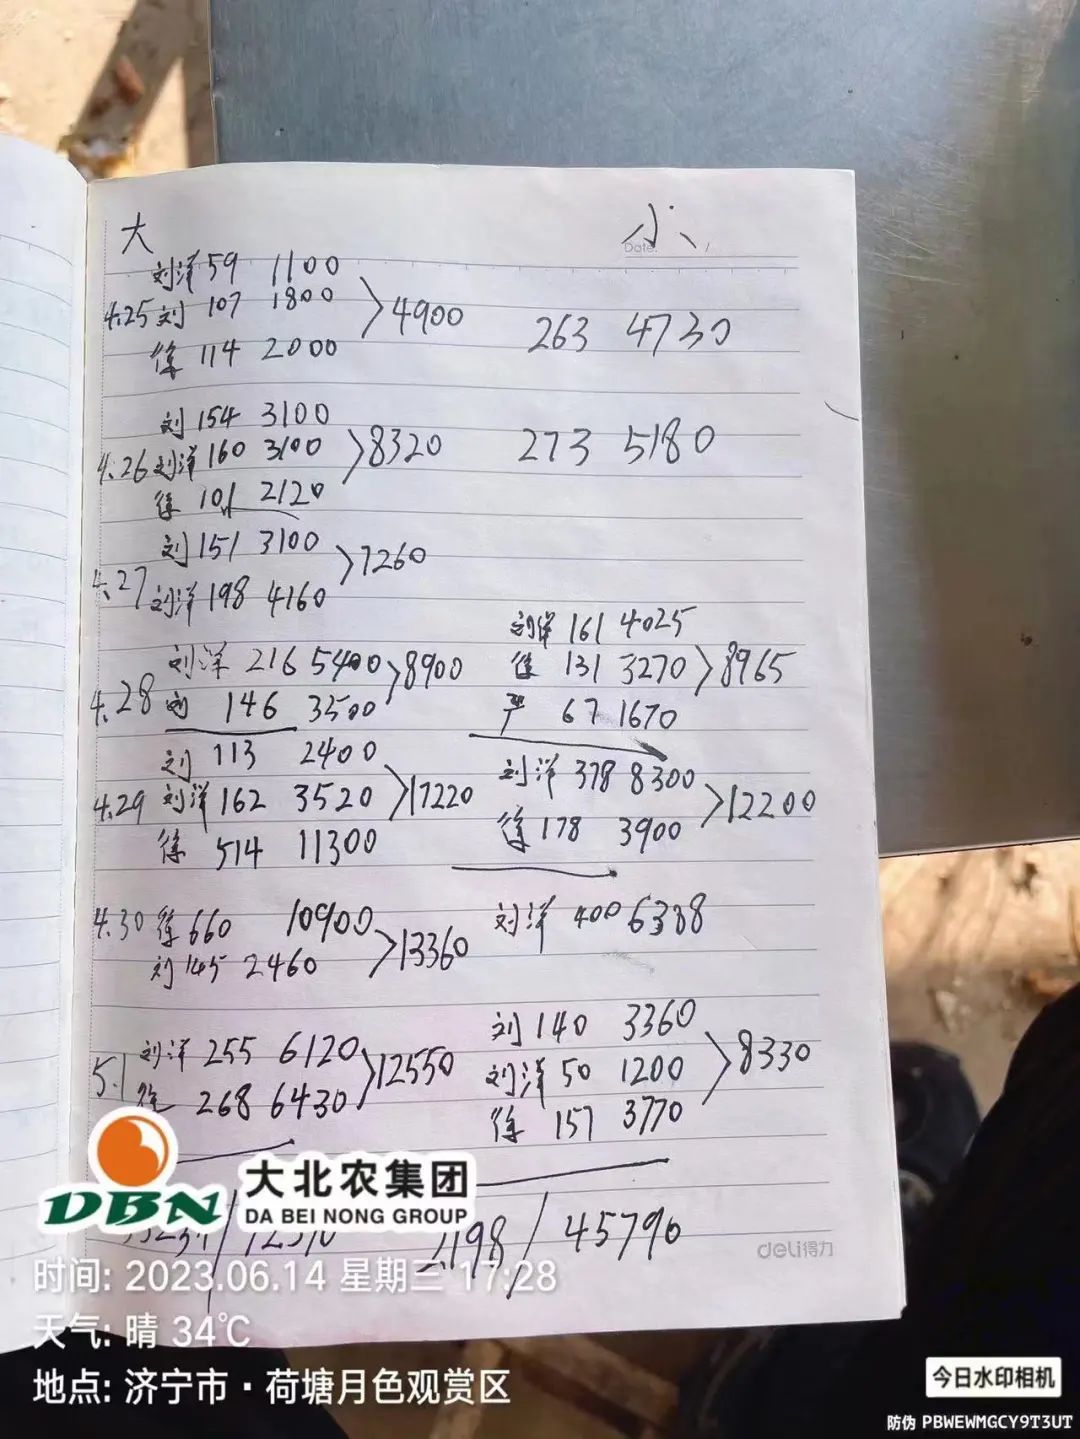 大 小
Date: /
刘洋 59 1100
4.25 刘 107 1800 >4900 263 4730
徐 114 2000
刘 154 3100
4.26 刘洋 160 3100 >8320 273 5180
徐 101 2120
刘 151 3100 >7260
4.27 刘洋 198 4160
刘洋 161 4025
刘洋 216 5400 >8900 徐 131 3270 >8965
4.28 刘 146 3500 严 67 1670
刘 113 2400 刘洋 378 8300
4.29 刘洋 162 3520 >17220 >12200
徐 514 11300 徐 178 3900
4.30 徐 660 10900 >13360 刘洋 400 6338
刘 145 2460
刘 140 3360
5.1 刘洋 255 6120 >12550 刘洋 50 1200 >8330
徐 268 6430 徐 157 3770
2198 / 45790
deli得力
DBN 大北农集团
DA BEI NONG GROUP
时间: 2023.06.14 星期三 17:28
天气: 晴 34℃
地点: 济宁市·荷塘月色观赏区
今日水印相机
防伪 PBWEWMGCY9T3UT